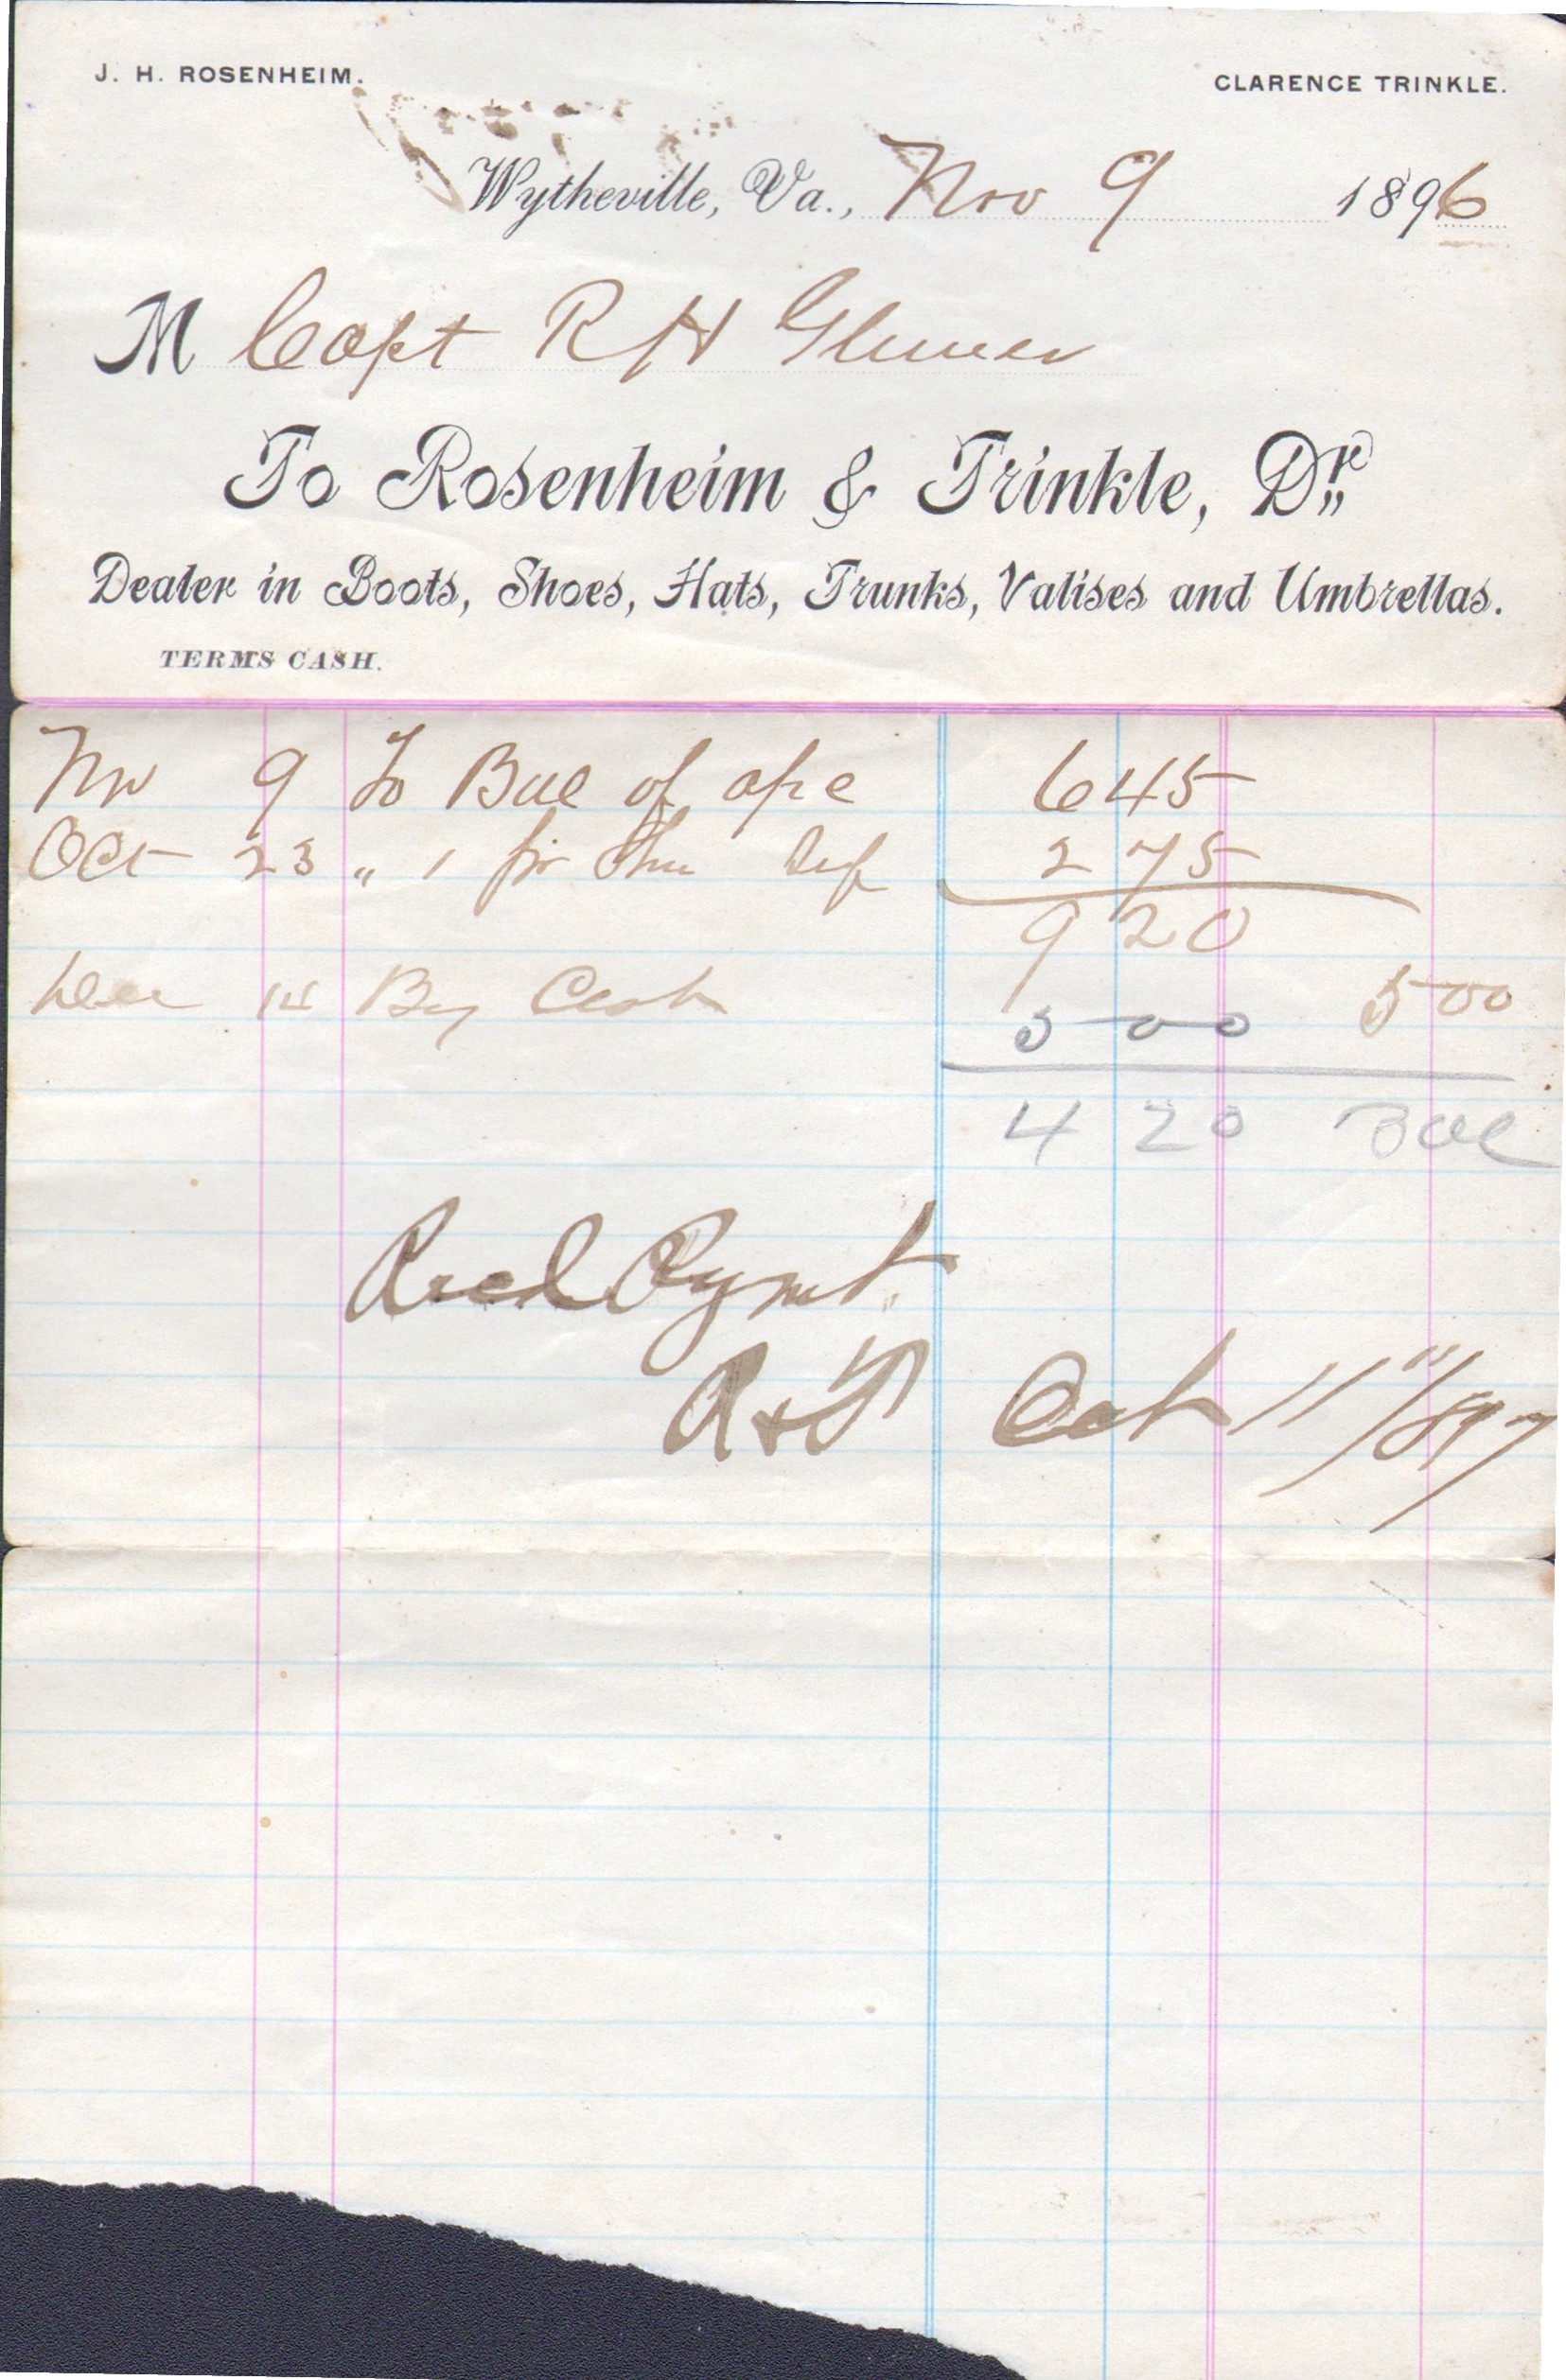 J. H. ROSENHEIM. CLARENCE TRINKLE.
Wytheville, Va., Nov 9 1896
M Capt R H
To Rosenheim & Trinkle, Dr.
Dealer in Boots, Shoes, Hats, Trunks, Valises and Umbrellas.
TERMS CASH.
Nov 9 To Bal of a/c 6 45
Oct 23 " 1 pr 2 75
9 20
Dec 14 By Cash 5 00
5 00
4 20 Bal
Recd Paymt.
R & T Oct 11"/1897